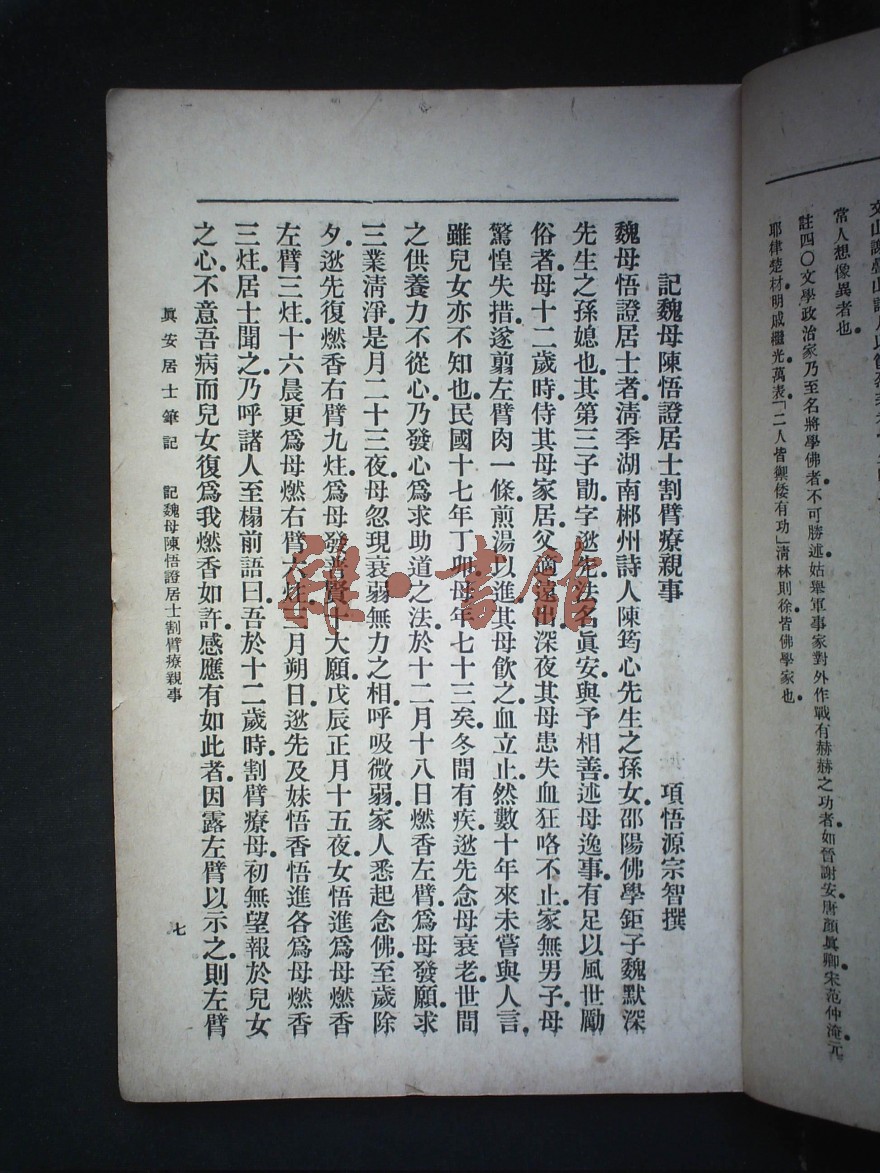 交山謝疊山諸人以
常人想像異者也。
註四〇文學政治家乃至名將學佛者。不可勝述。姑舉軍事家對外作戰有赫赫之功者。如晉謝安。唐顏眞卿。宋范仲淹。元
耶律楚材。明戚繼光。萬表。「二人皆禦倭有功」清林則徐。皆佛學家也。
記魏母陳悟證居士割臂療親事　項悟源宗智撰
魏母悟證居士者。清季湖南郴州詩人陳筠心先生之孫女。邵陽佛學鉅子魏默深
先生之孫媳也。其第三子勖。字逖先。法名眞安。與予相善。述母逸事。有足以風世勵
俗者。母十二歲時。侍其母家居。父適遠出。深夜其母患失血狂咯不止。家無男子。母
驚惶失措。遂翦左臂肉一條。煎湯以進。其母飲之。血立止。然數十年來未嘗與人言。
雖兒女亦不知也。民國十七年丁卯。母年七十三矣。冬間有疾。逖先念母衰老。世間
之供養力不從心。乃發心爲求助道之法。於十二月十八日燃香左臂。爲母發願。求
三業清淨。是月二十三夜。母忽現衰弱無力之相。呼吸微弱。家人悉起念佛。至歲除
夕。逖先復燃香右臂九炷。爲母發普賢十大願。戊辰正月十五夜。女悟進爲母燃香
左臂三炷。十六晨。更爲母燃右臂六炷。二月朔日。逖先及妹悟香悟進各爲母燃香
三炷。居士聞之。乃呼諸人至榻前語曰。吾於十二歲時。割臂療母。初無望報於兒女
之心。不意吾病而兒女復爲我燃香如許。感應有如此者。因露左臂以示之。則左臂
眞安居士筆記　記魏母陳悟證居士割臂療親事　七
雜·書館